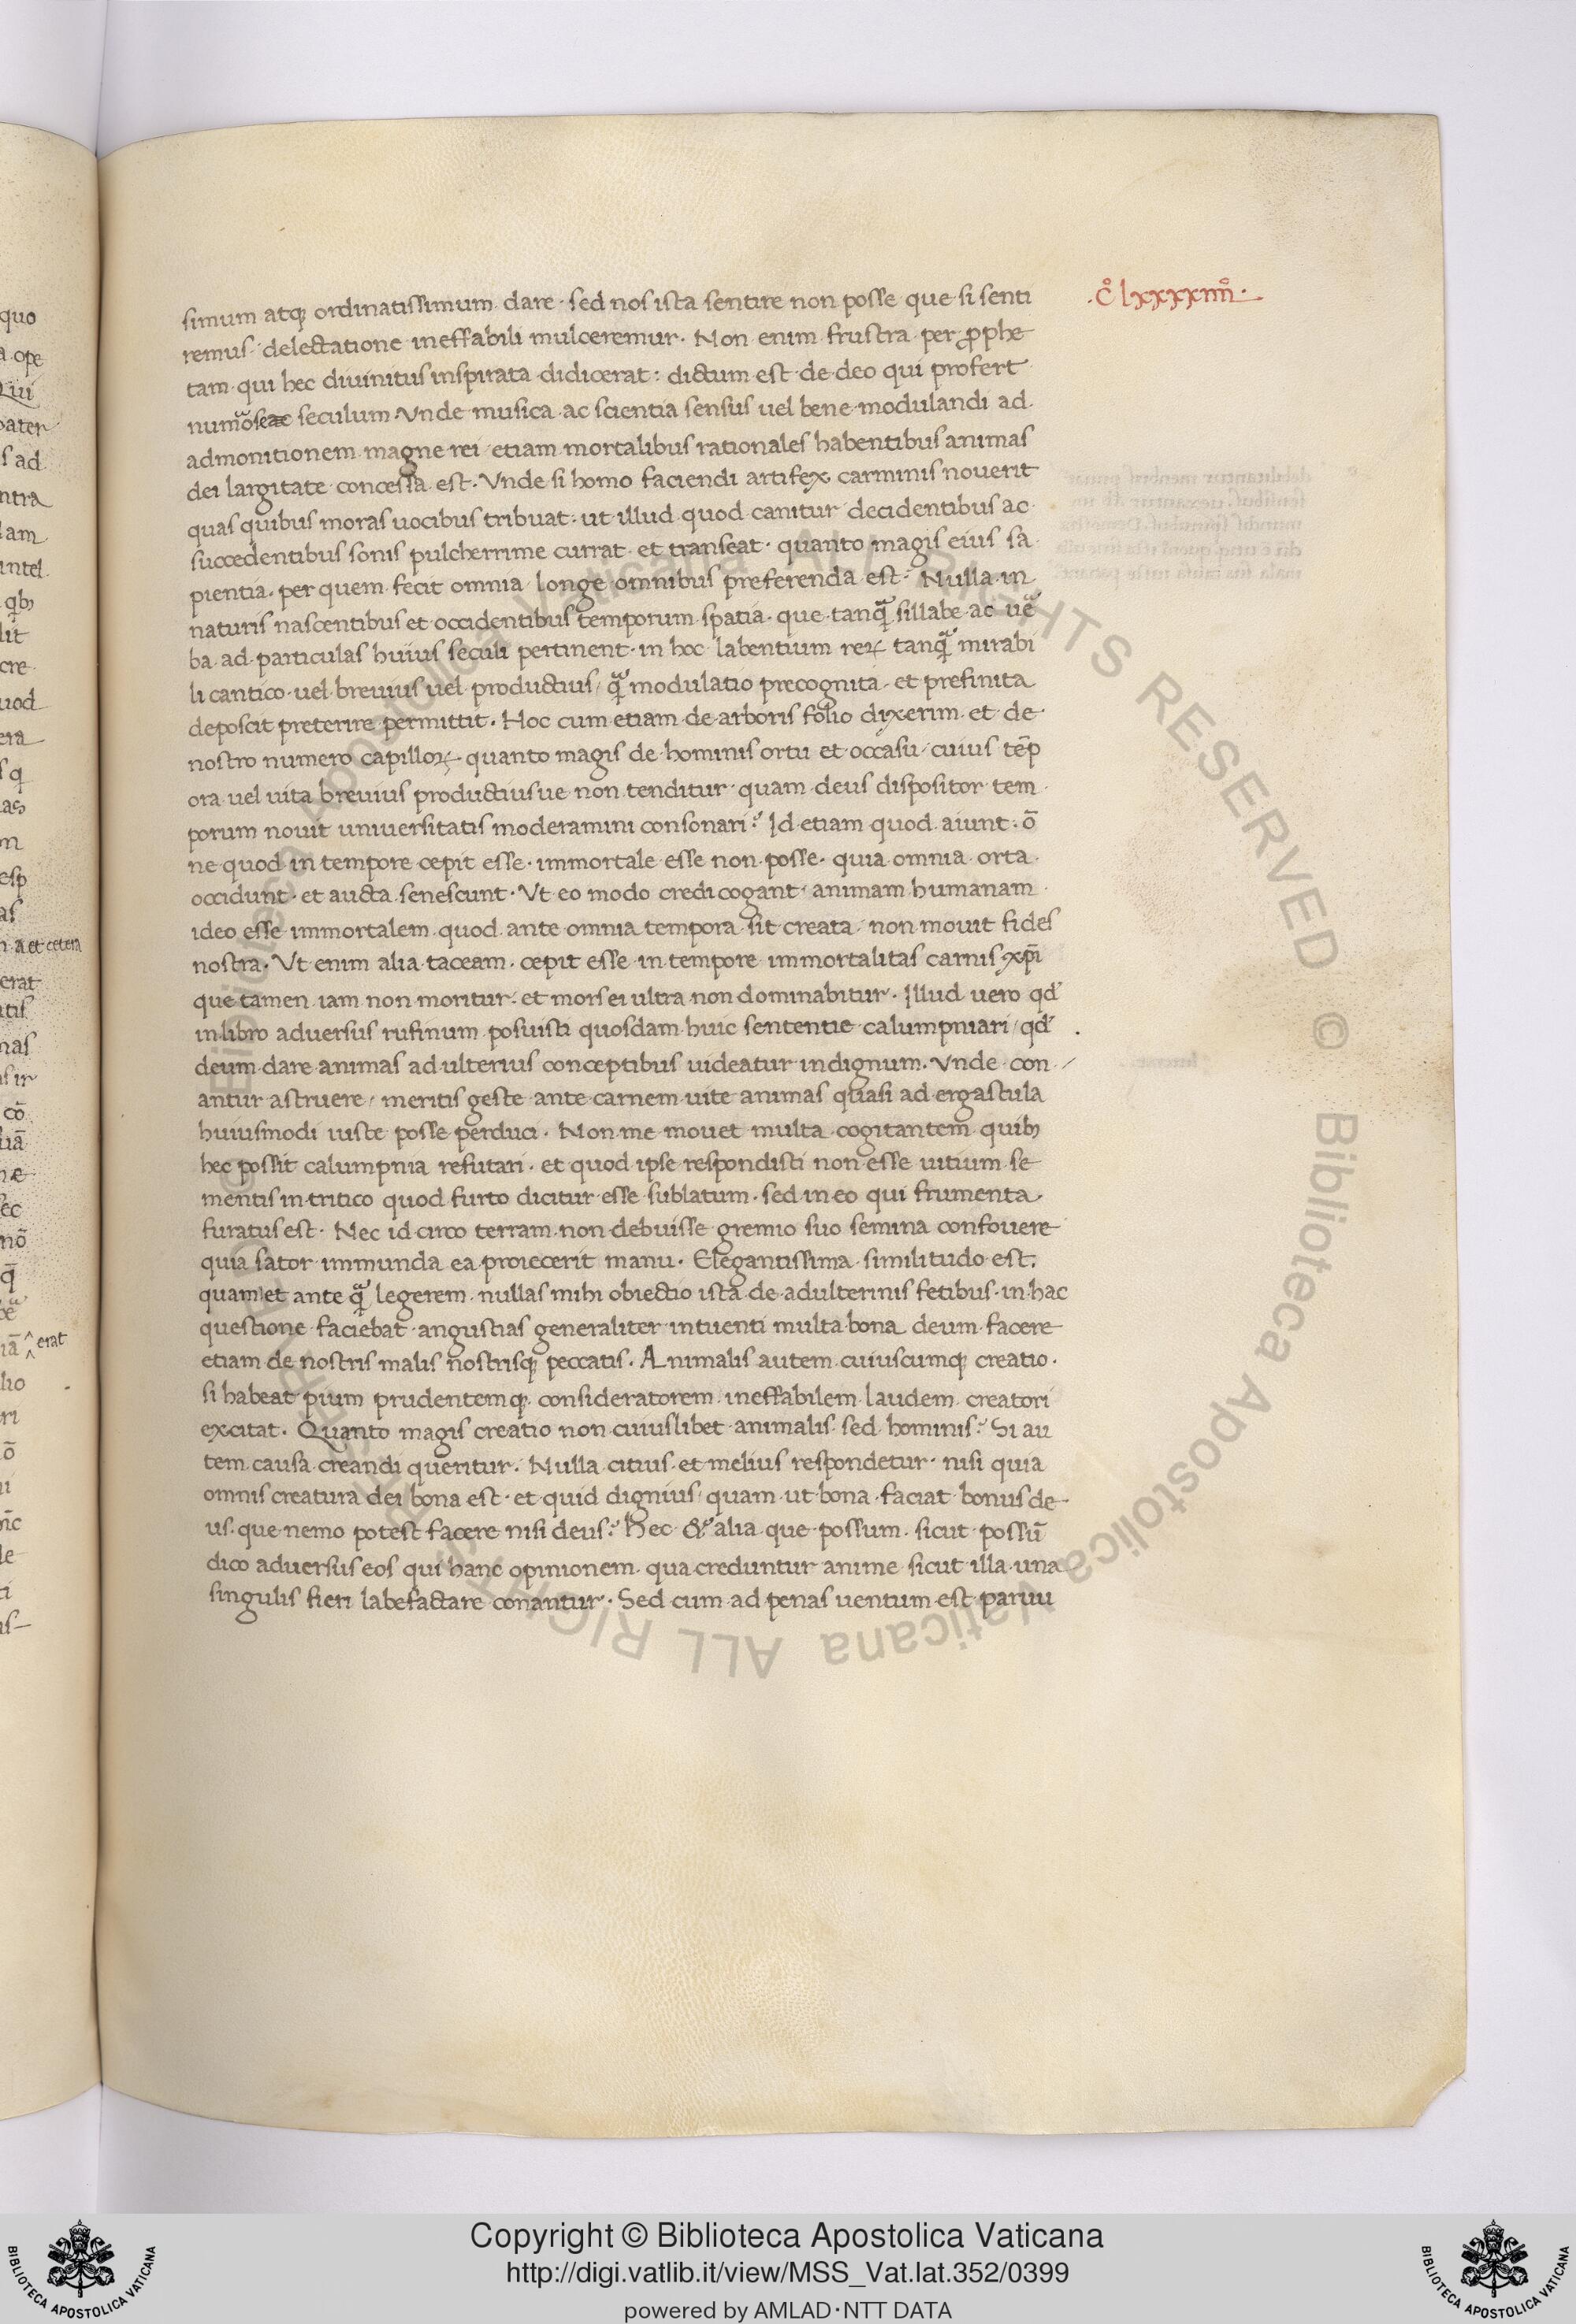 quo
ope
Qui
pater
s ad
ntra
iam
intel
qb
lit
cre
uod
era
s q
n
esp
as
n a et cetera
erat
atis
nas
s ir
cō
uā
næ
ec
nō
q̄
iā ^ erat
lio
ri
ō
ui
le
ti
us
.c̊ lxxxxiiii̊.
simum atq; ordinatissimum dare · sed nos ista sentire non posse que si senti
remus · delectatione ineffabili mulceremur · Non enim frustra per p̄phe
tam qui hec diuinitus inspirata didicerat : dictum est de deo qui profert
seculum · Vnde musica ac scientia sensus uel bene modulandi ad
admonitionem magne rei etiam mortalibus rationales habentibus animas
dei largitate concessa est · Vnde si homo faciendi artifex carminis nouerit
quas quibus moras uocibus tribuat · ut illud quod canitur decidentibus ac
succedentibus sonis pulcherrime currat et transeat · quanto magis eius sa
pientia · per quem fecit omnia longe omnibus preferenda est · Nulla in
naturis nascentibus et occidentibus temporum spatia · que tanq̃ sillabe ac ue᷒
ba ad particulas huius seculi pertinent · in hoc labentium reꝝ tanq̃ mirabi
li cantico uel breuius uel productius / q̃ modulatio precognita et prefinita
deposcit preterire permittit · Hoc cum etiam de arboris folio dixerim et de
nostro numero capilloꝝ quanto magis de hominis ortu et occasu / cuius tēp
ora uel uita breuius productiusue non tenditur quam deus dispositor tem
porum nouit uniuersitatis moderamini consonari ? Id etiam quod aiunt · ō
ne quod in tempore cepit esse · immortale esse non posse · quia omnia orta
occidunt · et aucta senescunt · Vt eo modo credi cogant animam humanam
ideo esse immortalem quod ante omnia tempora sit creata / non mouit fides
nostra · Vt enim alia taceam · cepit esse in tempore immortalitas carnis xp̄i
que tamen iam non moritur · et mors ei ultra non dominabitur · Illud uero qd᷒
in libro aduersus rufinum posuisti quosdam huic sententie calumpniari / qd᷒
deum dare animas adulterius conceptibus uideatur indignum · Vnde con /
antur astruere / meritis geste ante carnem uite animas quasi ad ergastula
huiusmodi iuste posse perduci · Non me mouet multa cogitantem quib;
hec possit calumpnia refutari · et quod ipse respondisti non esse uitium se
mentis in tritico quod furto dicitur esse sublatum · sed in eo qui frumenta
furatus est · Nec id circo terram non debuisse gremio suo semina confouere
quia sator immunda ea proiecerit manu · Elegantissima similitudo est;
quam et ante q̃ legerem nullas mihi obiectio ista de adulterinis fetibus in hac
questione faciebat angustias generaliter intuenti multa bona deum facere
etiam de nostris malis nostrisq; peccatis · Animalis autem cuiuscumq; creatio ·
si habeat pium prudentemq; consideratorem ineffabilem laudem creatori
excitat · Quanto magis creatio non cuiuslibet animalis sed hominis ? Si au
tem causa creandi queritur · Nulla citius et melius respondetur · nisi quia
omnis creatura dei bona est · et quid dignius quam ut bona faciat bonus de
us que nemo potest facere nisi deus ? Hec & alia que possum sicut possū
dico aduersus eos qui hanc opinionem qua creduntur anime sicut illa una
singulis fieri labefactare conantur · Sed cum ad penas uentum est paruu
© Biblioteca Apostolica Vaticana ALL RIGHTS RESERVED © Biblioteca Apostolica Vaticana ALL RIGHTS RESERVED
Copyright © Biblioteca Apostolica Vaticana
http://digi.vatlib.it/view/MSS_Vat.lat.352/0399
powered by AMLAD·NTT DATA
BIBLIOTECA APOSTOLICA VATICANA
BIBLIOTECA APOSTOLICA VATICANA